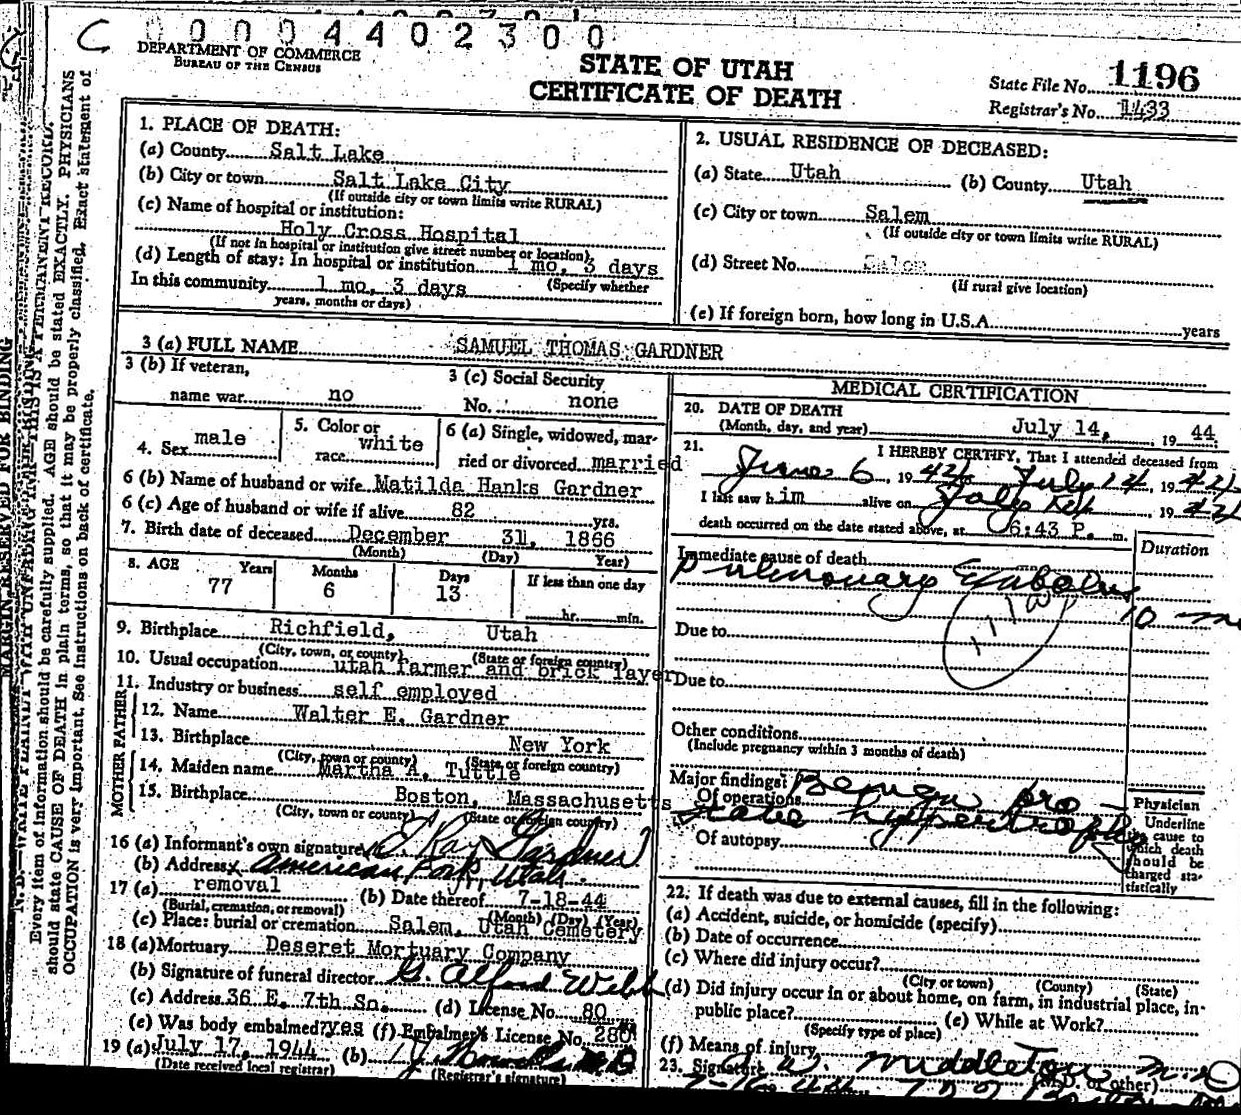 C
0 0 0 0 4 4 0 2 3 0 0
DEPARTMENT OF COMMERCE
BUREAU OF THE CENSUS
STATE OF UTAH
CERTIFICATE OF DEATH
State File No. 1196
Registrar's No. 1433
MARGIN RESERVED FOR BINDING
N. B.—WRITE PLAINLY WITH UNFADING INK—THIS IS A PERMANENT RECORD.
Every item of information should be carefully supplied. AGE should be stated EXACTLY. PHYSICIANS
should state CAUSE OF DEATH in plain terms, so that it may be properly classified. Exact statement of
OCCUPATION is very important. See instructions on back of certificate.
1. PLACE OF DEATH:
(a) County Salt Lake
(b) City or town Salt Lake City
(If outside city or town limits write RURAL)
(c) Name of hospital or institution:
Holy Cross Hospital
(If not in hospital or institution give street number or location)
(d) Length of stay: In hospital or institution 1 mo, 3 days
In this community 1 mo, 3 days (Specify whether
years, months or days)
2. USUAL RESIDENCE OF DECEASED:
(a) State Utah (b) County Utah
(c) City or town Salem
(If outside city or town limits write RURAL)
(d) Street No. Salem
(If rural give location)
(e) If foreign born, how long in U.S.A. years
3 (a) FULL NAME SAMUEL THOMAS GARDNER
3 (b) If veteran,
name war no
3 (c) Social Security
No. none
4. Sex male
5. Color or
race white
6 (a) Single, widowed, mar-
ried or divorced married
6 (b) Name of husband or wife Matilda Hanks Gardner
6 (c) Age of husband or wife if alive 82 yrs.
7. Birth date of deceased December 31, 1866
(Month) (Day) Year)
8. AGE Years Months Days If less than one day
77 6 13 hr. min.
9. Birthplace Richfield, Utah
(City, town, or county) (State or foreign country)
10. Usual occupation utah farmer and brick layer
11. Industry or business self employed
FATHER
12. Name Walter E. Gardner
13. Birthplace New York
(City, town or county) (State or foreign country)
MOTHER
14. Maiden name Martha A. Tuttle
15. Birthplace Boston, Massachusetts
(City, town or county) (State or foreign country)
16 (a) Informant's own signature Ray Gardner
(b) Address American Fork, Utah.
17 (a) removal (b) Date thereof 7-18-44
(Burial, cremation, or removal) (Month) (Day) (Year)
(c) Place: burial or cremation Salem, Utah Cemetery
18 (a) Mortuary Deseret Mortuary Company
(b) Signature of funeral director G. Alford Webb
(c) Address 36 E. 7th So. (d) License No. 80
(e) Was body embalmed? yes (f) Embalmer's License No. 280
19 (a) July 17, 1944 (b)
(Date received local registrar) (Registrar's signature)
MEDICAL CERTIFICATION
20. DATE OF DEATH
(Month, day, and year) July 14, 19 44
21. I HEREBY CERTIFY, That I attended deceased from
June 6, 19 44 July 14, 19 44
I last saw him alive on July 19 44
death occurred on the date stated above, at 6:43 P. m.
Duration
Immediate cause of death
Pulmonary Embolus
10
Due to
Due to
Other conditions
(Include pregnancy within 3 months of death)
Major findings:
Of operations Benign pro-
state hypertrophy
Of autopsy
Physician
Underline
the cause to
which death
should be
charged sta-
tistically
22. If death was due to external causes, fill in the following:
(a) Accident, suicide, or homicide (specify)
(b) Date of occurrence
(c) Where did injury occur?
(City or town) (County) (State)
(d) Did injury occur in or about home, on farm, in industrial place, in-
public place? (e) While at Work?
(Specify type of place)
(f) Means of injury
23. Signature Middleton M.D.
(M.D. or other)